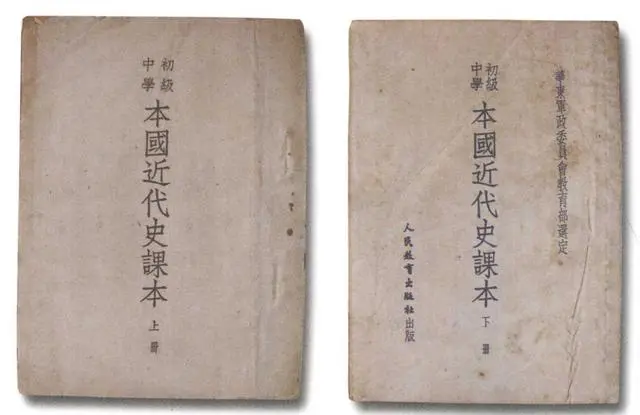 初級
中學
本國近代史課本
上冊
華東軍政委員會教育部選定
初級
中學
本國近代史課本
下冊
人民教育出版社出版